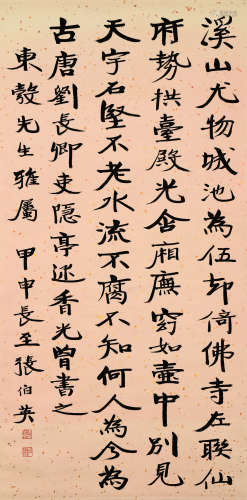 溪山尤物城池為伍卻倚佛寺左聯仙
府勢拱臺殿光含廂廡窈如壺中別見
天宇石堅不老水流不腐不知何人為今為
古唐劉長卿吏隱亭述香光曾書之
東瑴先生雅屬 甲申長至張伯英